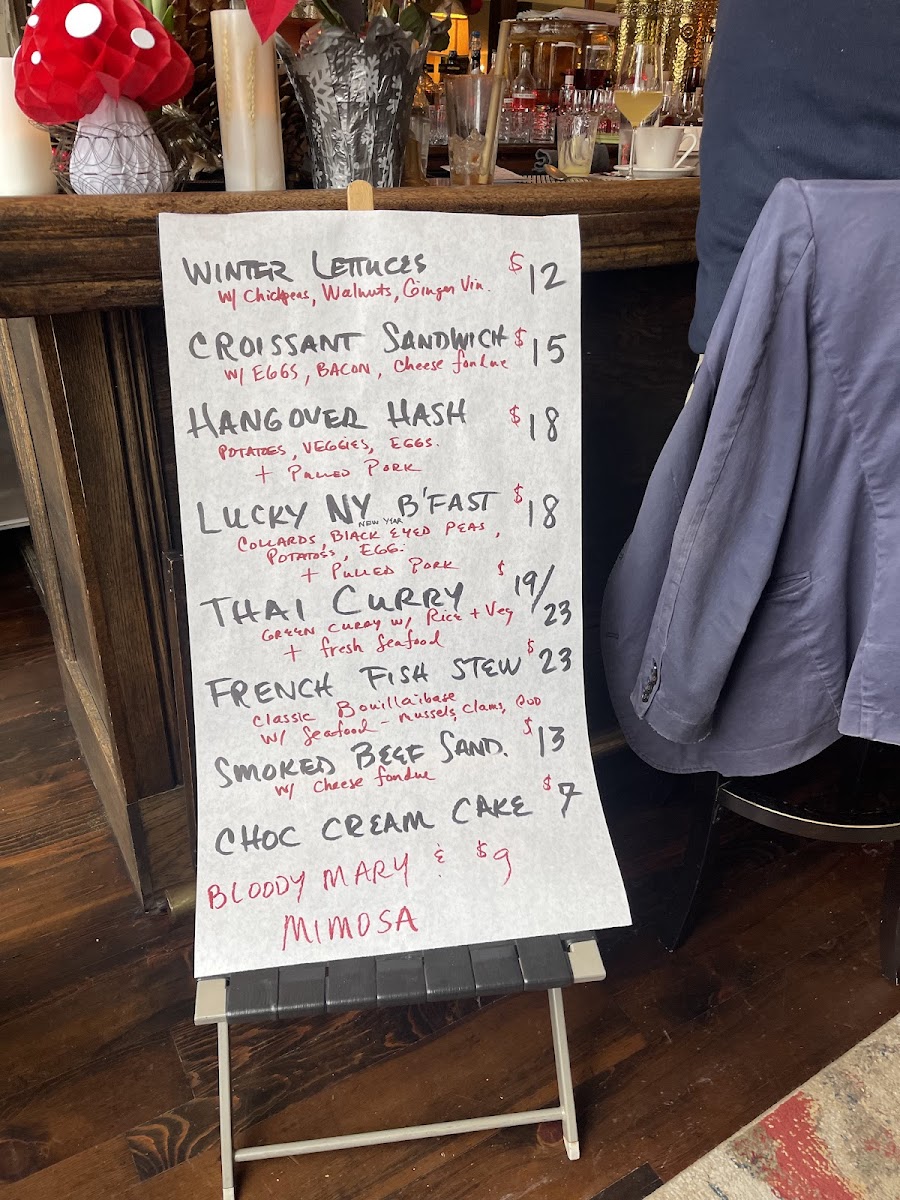 WINTER LETTUCES $12
W/ Chickpeas, Walnuts, Ginger Vin.
CROISSANT SANDWICH $15
W/ EGGS, BACON, Cheese fondue
HANGOVER HASH $18
POTATOES, VEGGIES, EGGS.
+ PULLED PORK
LUCKY NY B'FAST $18
NEW YEAR
COLLARDS, BLACK EYED PEAS,
POTATOES, EGG.
+ PULLED PORK
THAI CURRY $19/23
GREEN CURRY W/ Rice + Veg
+ fresh Seafood
FRENCH FISH STEW $23
Classic Bouillaibase
W/ Seafood - Mussels, Clams, COD
SMOKED BEEF SAND. $13
W/ Cheese fondue
CHOC CREAM CAKE $7
BLOODY MARY & $9
MIMOSA